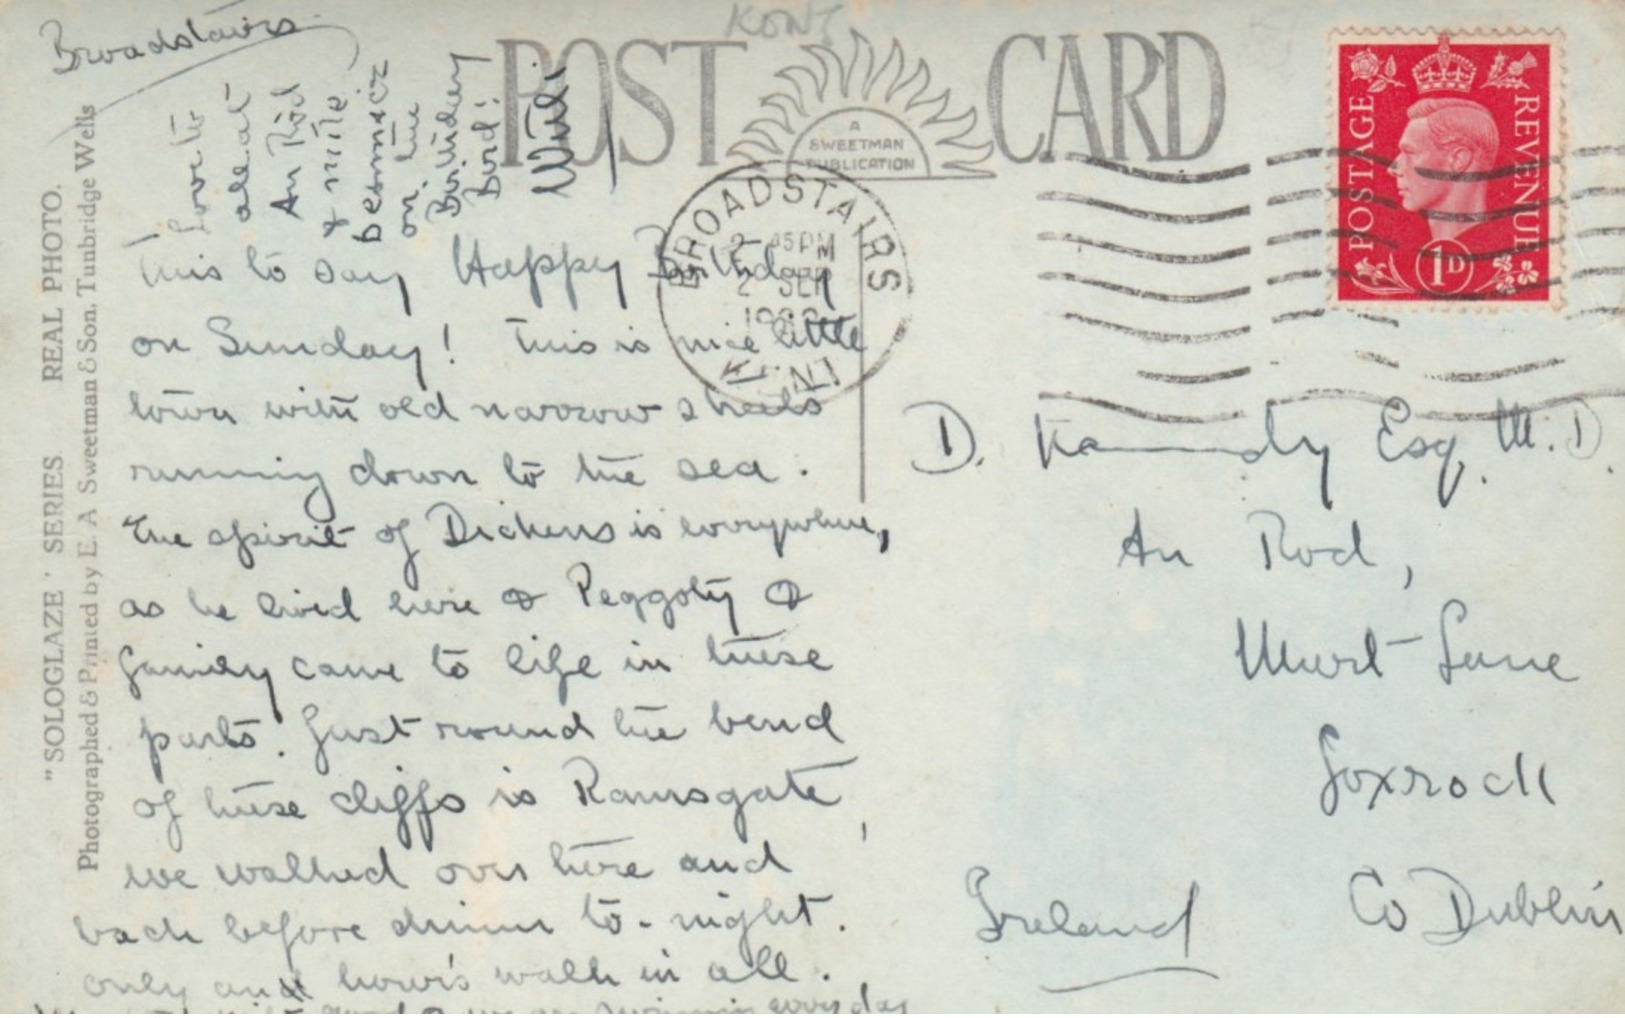 Broadstairs
POST CARD
KENT
A
SWEETMAN
PUBLICATION
"SOLOGLAZE" SERIES REAL PHOTO.
Photographed & Printed by E. A Sweetman & Son, Tunbridge Wells
POSTAGE REVENUE
1D
BROADSTAIRS
2 45 PM
2 SEP
KENT
This to say Happy Birthday
on Sunday! This is nice little
town with old narrow streets
running down to the sea.
The spirit of Dickens is everywhere,
as he lived here & Peggoty &
family came to life in these
parts. Just round the bend
of these cliffs is Ramsgate,
we walked over here and
back before dinner to-night.
only an hour's walk in all.
good & we are swimming every day
Love to
all at
An Rod
&
on the
Birthday
Bird!
D. Kennedy Esq, M.D.
An Rod,
Murt Lane
Foxrock
Co Dublin
Ireland